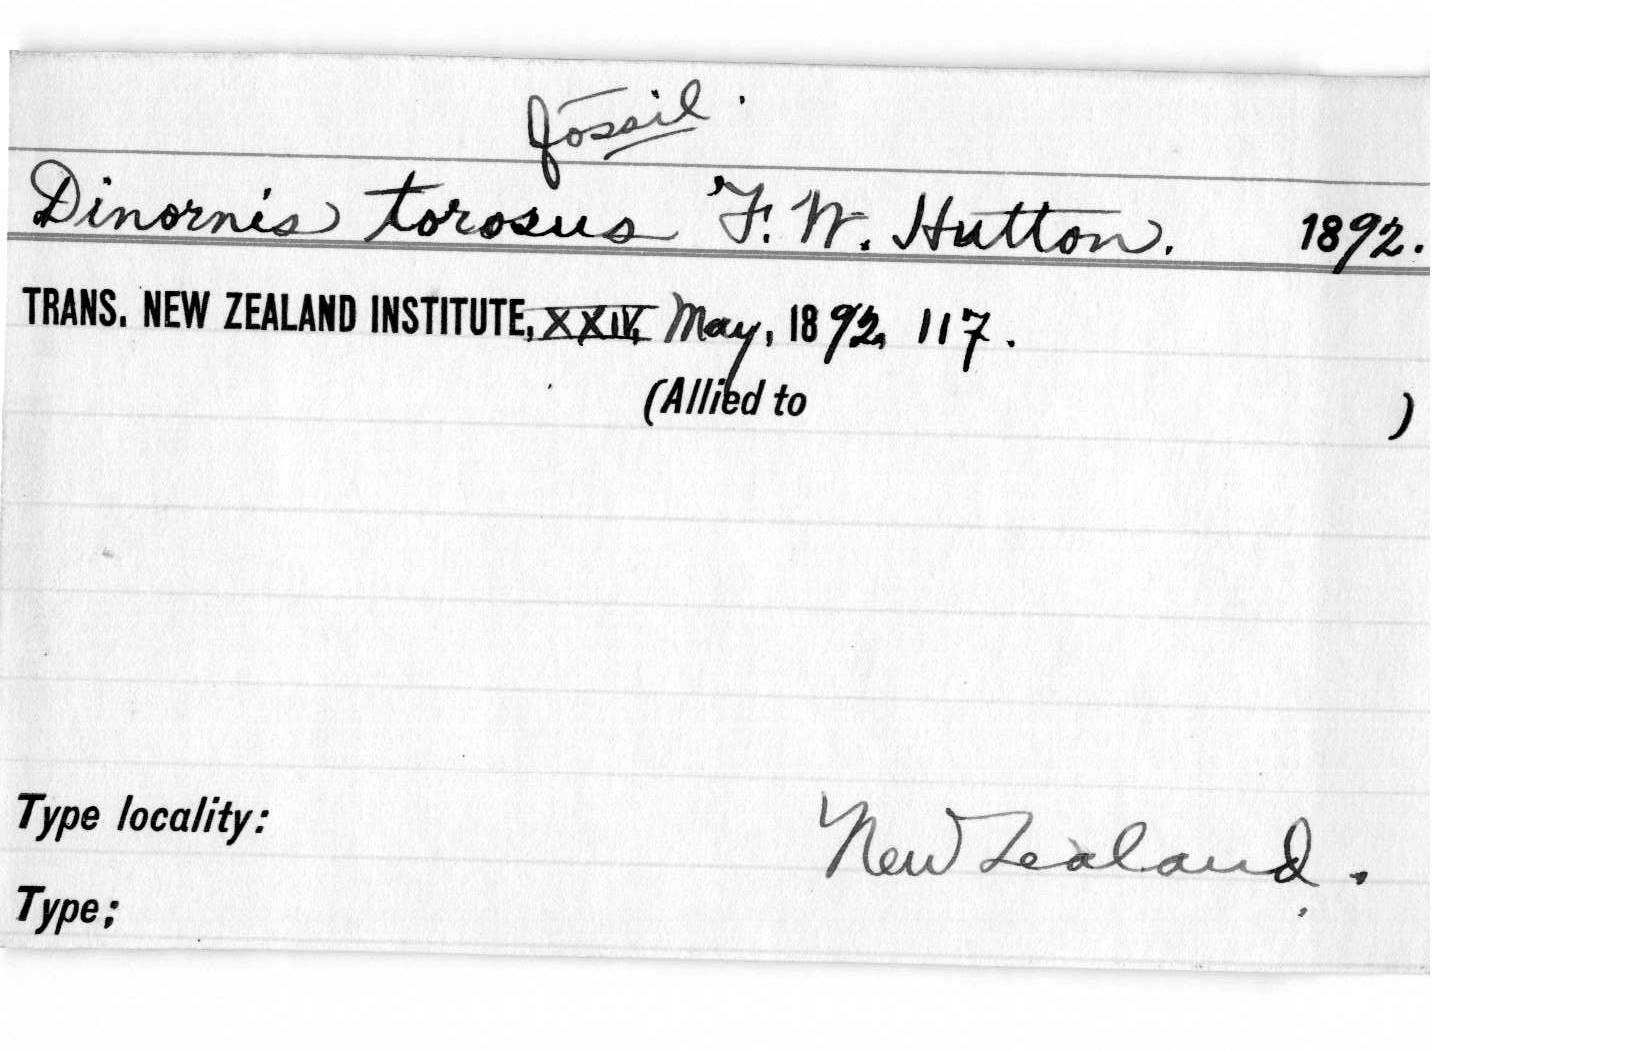 fossil.
Dinornis torosus F. W. Hutton. 1892.
TRANS. NEW ZEALAND INSTITUTE, XXIV, May, 1892, 117.
(Allied to )
Type locality: New Zealand.
Type: